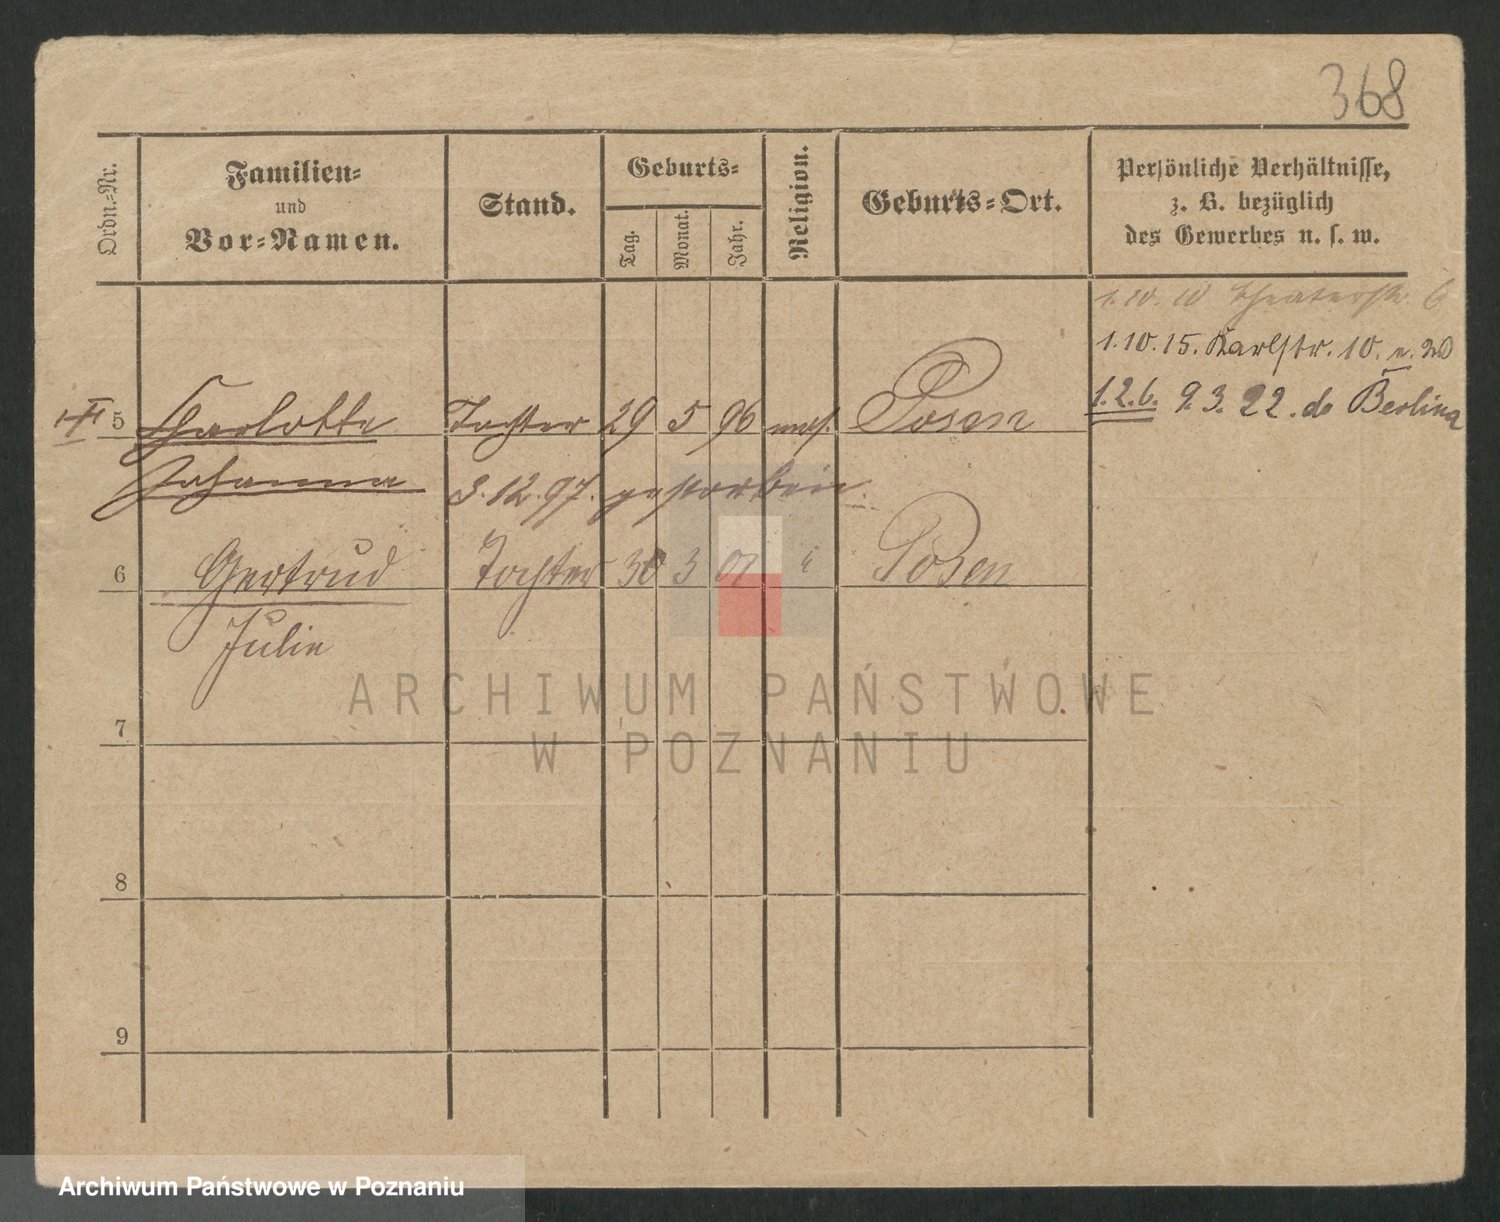 368
Ordn.-Nr.
Familien-
und
Vor-Namen.
Stand.
Geburts-
Tag.
Monat.
Jahr.
Religion.
Geburts-Ort.
Persönliche Verhältnisse,
z. B. bezüglich
des Gewerbes u. s. w.
1.10.10 Theaterstr. 6
1.10.15. Karlstr. 10.
5 Charlotte Tochter 29 5 96 mos. Posen
1.2.6. 9.3.22. do Berlin
Johanna 3.12.97. gestorben.
6 Gertrud Tochter 30 3 01 " Posen
Julie
7
8
9
ARCHIWUM PAŃSTWOWE
W POZNANIU
Archiwum Państwowe w Poznaniu